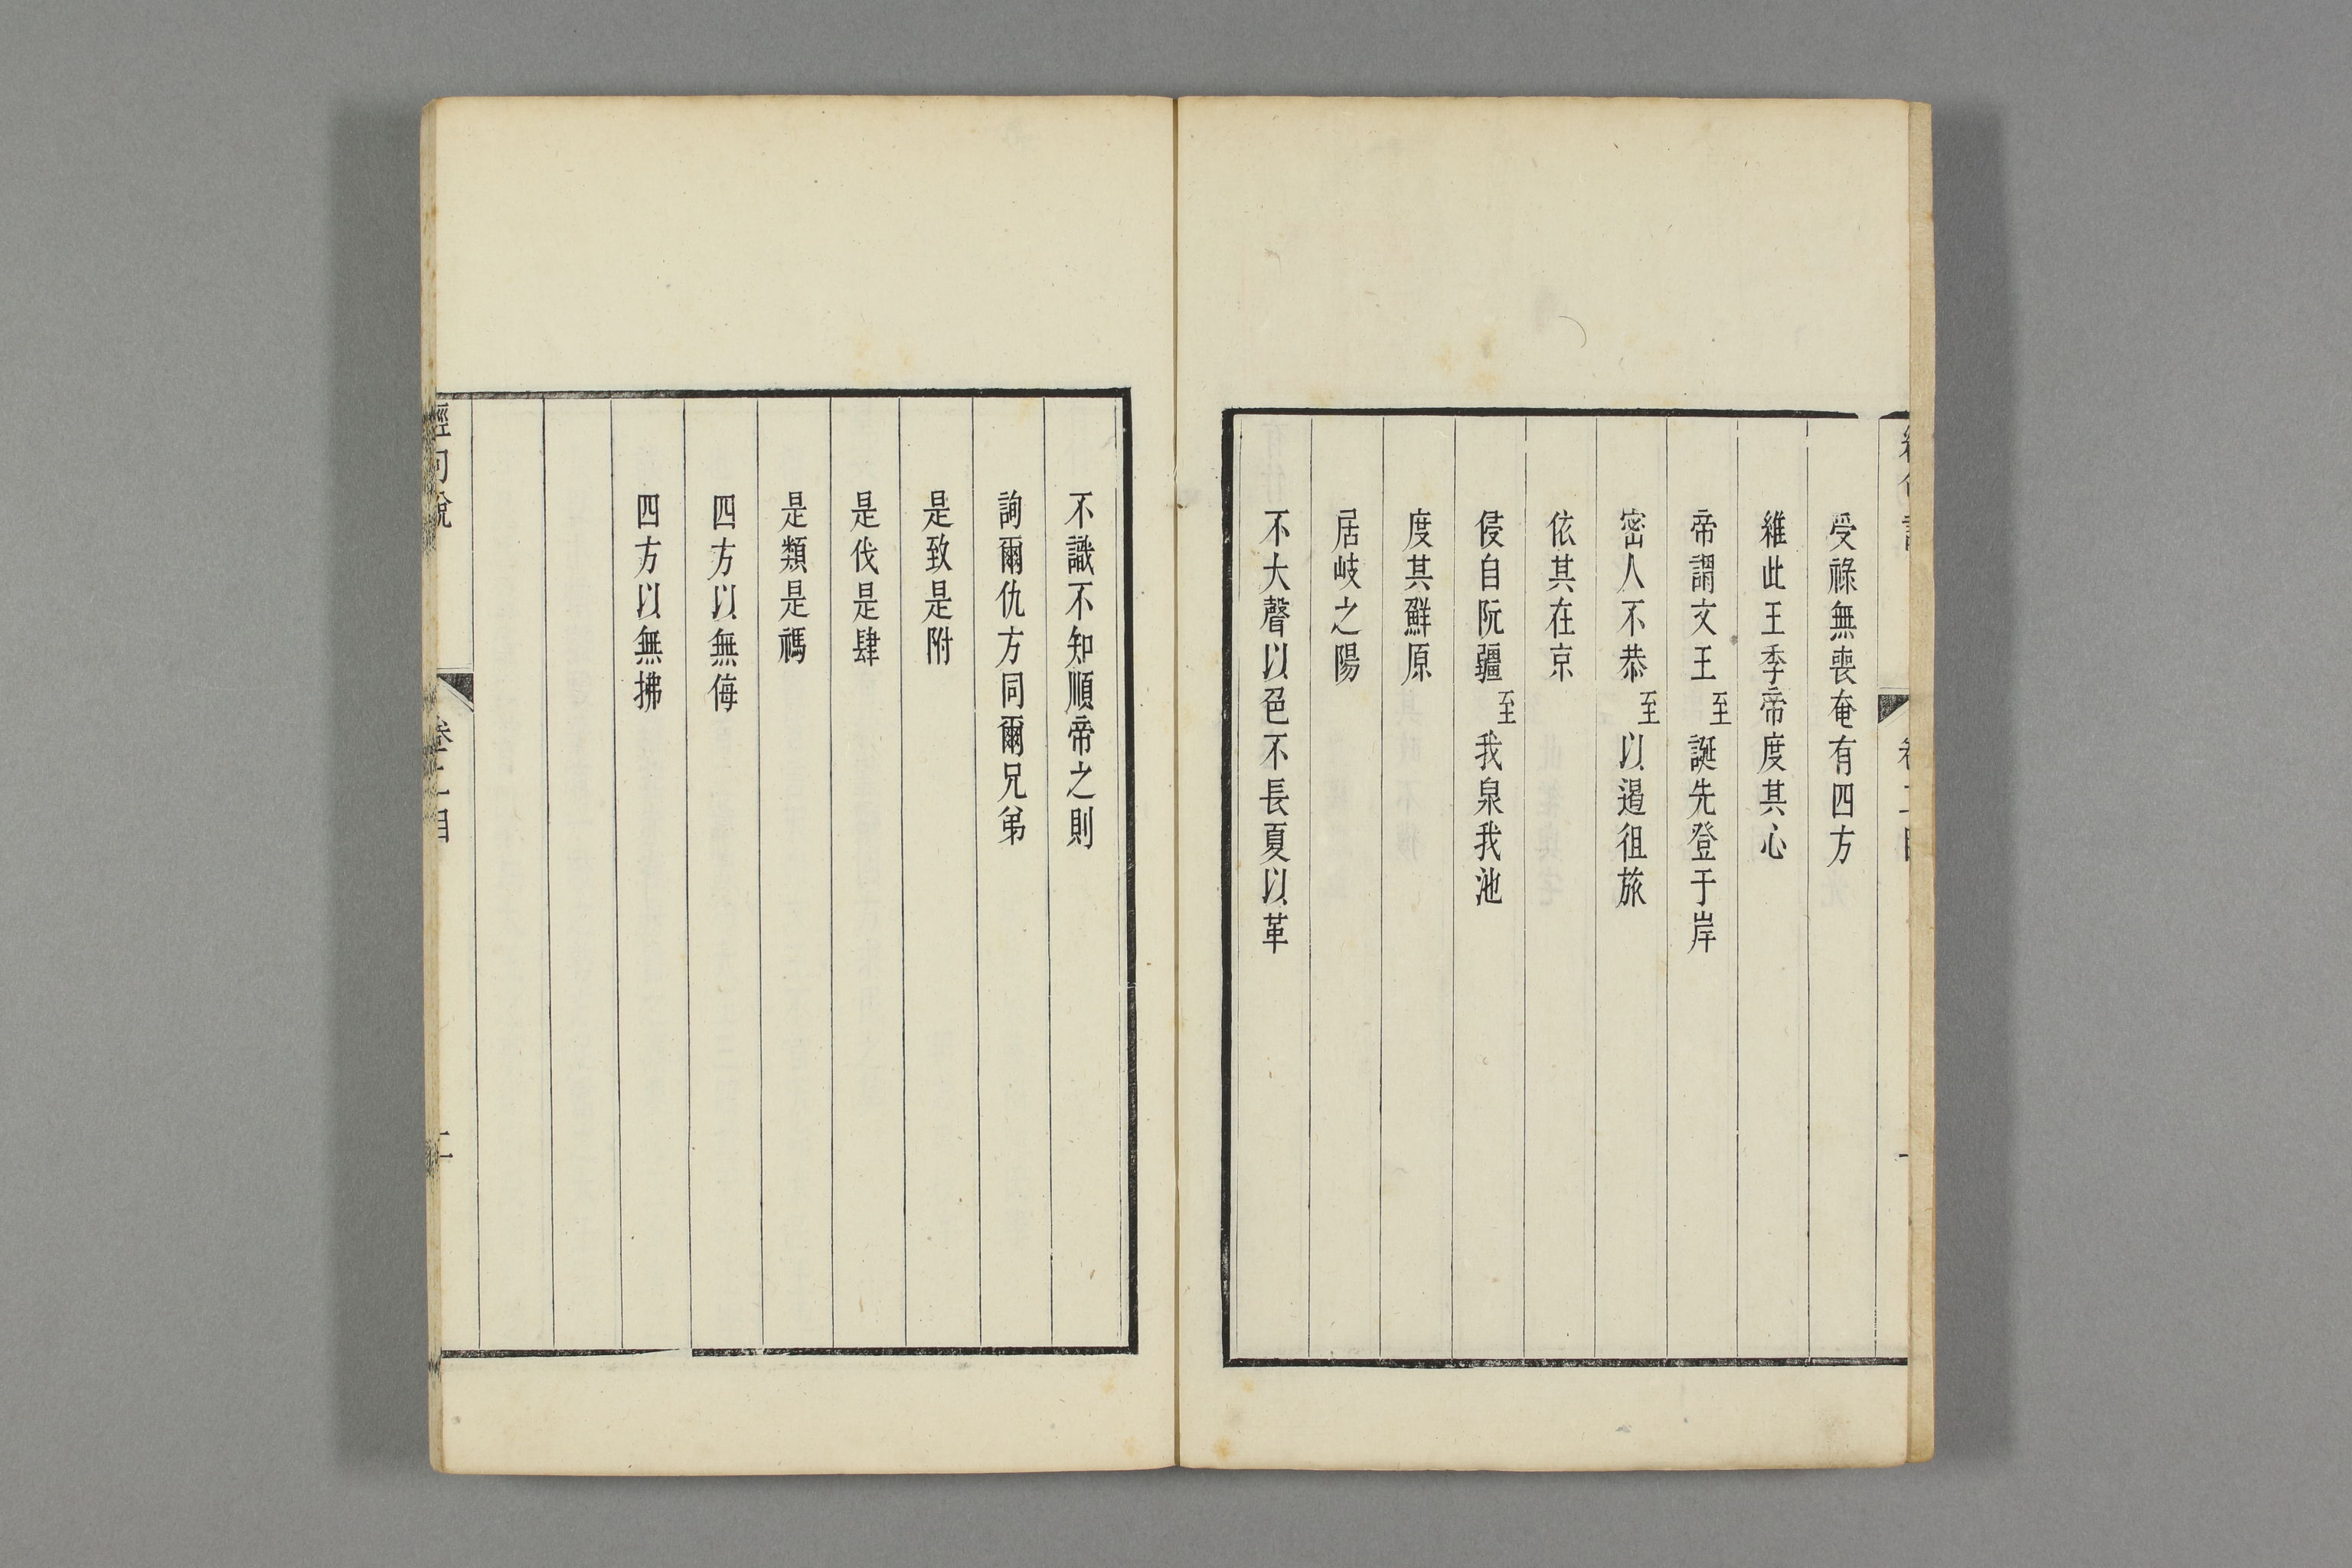 受祿無喪奄有四方
維此王季帝度其心
帝謂文王至誕先登于岸
密人不恭至以遏徂旅
依其在京
侵自阮疆至我泉我池
度其鮮原
居岐之陽
不大聲以色不長夏以革
不識不知順帝之則
詢爾仇方同爾兄弟
是致是附
是伐是肆
是類是禡
四方以無侮
四方以無拂
經句說
卷二目
二